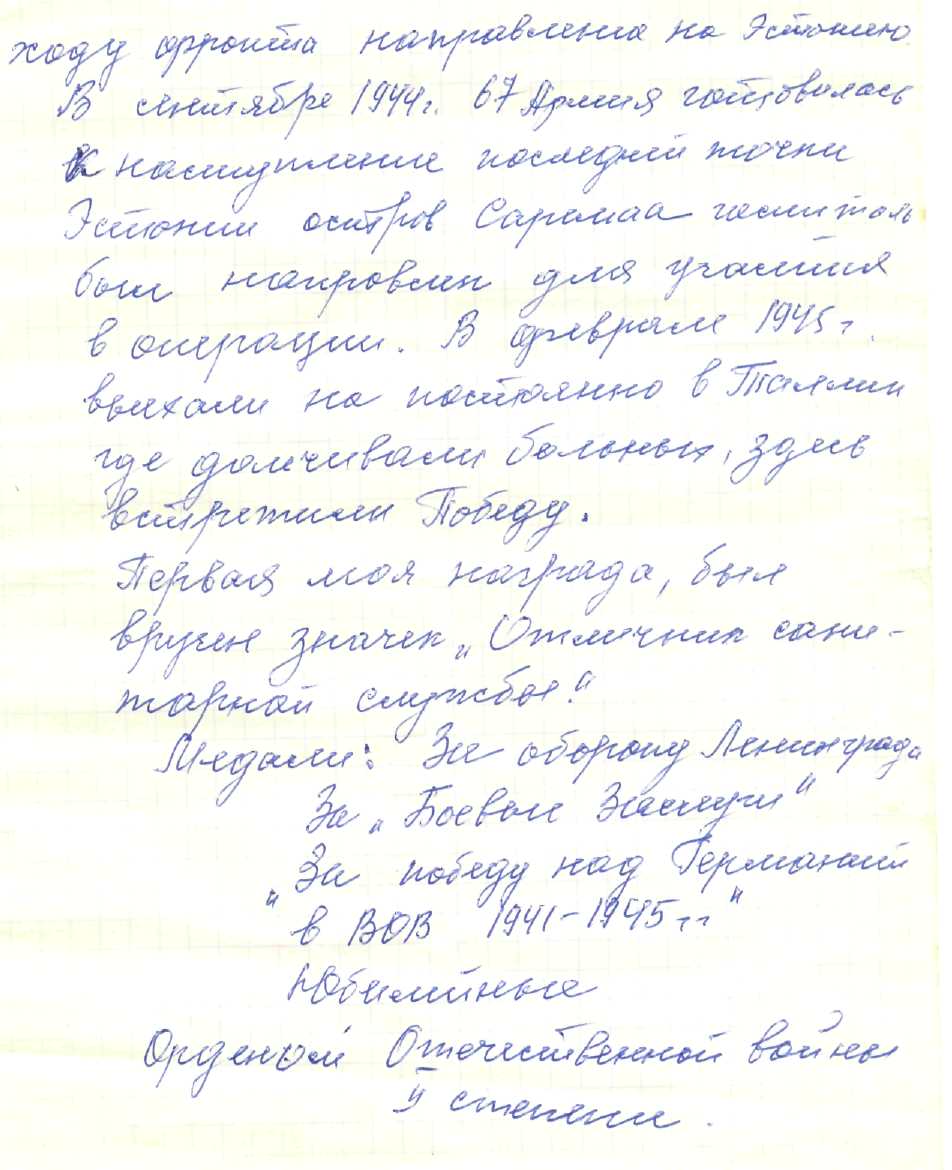 ходу фронта направлена на Эстонию
В сентябре 1944г. 67 Армия готовилась
к наступление последней точки
Эстонии остров Саремаа госпиталь
был направлен для участия
в операции. В феврале 1945г.
выехали на постоянно в Таллин
где долчивали больных, здесь
встретили Победу.
Первая моя награда, был
вручен значек „Отличник сани-
тарной службы“.
Медали: За оборону Ленинграда
За „Боевые Заслуги“
„За победу над Германией
в ВОВ 1941-1945гг“
Юбилейные
Орденом Отечественной войны
II степени.